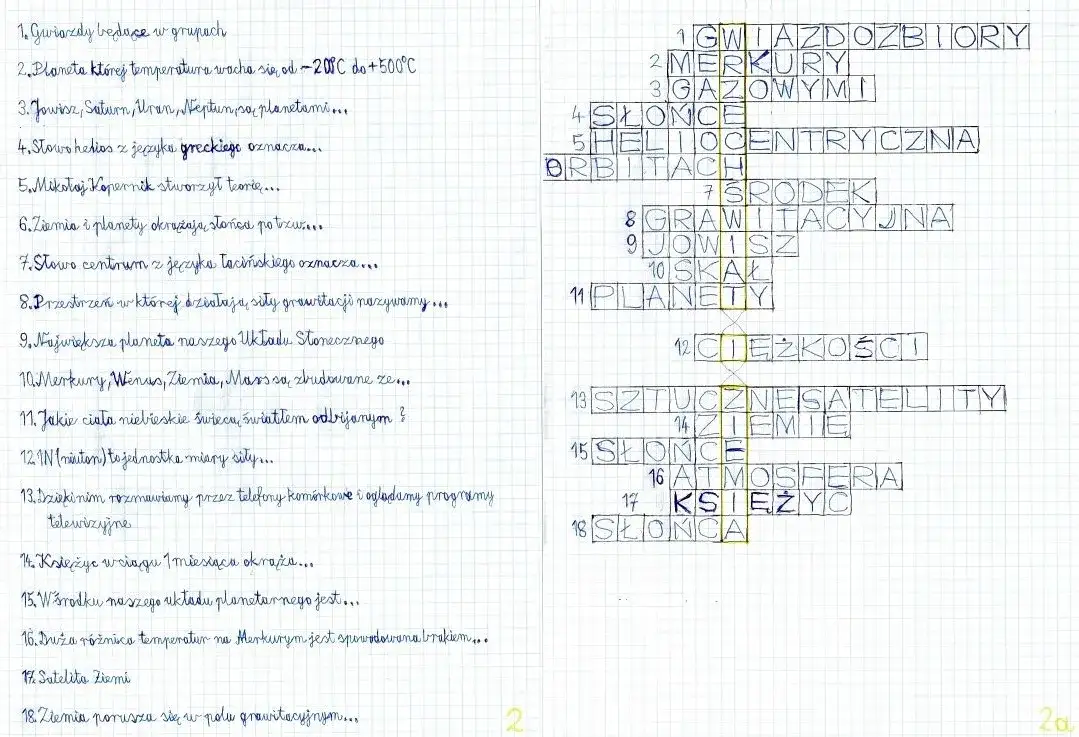 1. Gwiazdy będące w grupach
2. Planeta której temperatura wacha się od -200°C do +500°C
3. Jowisz, Saturn, Uran, Neptun, są planetami...
4. Słowo helios z języka greckiego oznacza...
5. Mikołaj Kopernik stworzył teorię...
6. Ziemia i planety okrążają słońce po tzw....
7. Słowo centrum z języka łacińskiego oznacza...
8. Przestrzeń w której działają siły grawitacji nazywamy...
9. Największa planeta naszego Układu Słonecznego
10. Merkury, Wenus, Ziemia, Mars są zbudowane ze...
11. Jakie ciała niebieskie świecą światłem odbijanym?
12. 1N (niuton) to jednostka miary siły...
13. Dzięki nim rozmawiamy przez telefony komórkowe i oglądamy programy
telewizyjne
14. Księżyc w ciągu 1 miesiąca okrąża...
15. W środku naszego układu planetarnego jest...
16. Duża różnica temperatur na Merkurym jest spowodowana brakiem...
17. Satelita Ziemi
18. Ziemia porusza się w polu grawitacyjnym...
2
1 GWIAZDOZBIORY
2 MERKURY
3 GAZOWYMI
4 SŁOŃCE
5 HELIOCENTRYCZNA
ORBITACH
7 ŚRODEK
8 GRAWITACYJNA
9 JOWISZ
10 SKAŁ
11 PLANETY
12 CIĘŻKOŚCI
13 SZTUCZNESATELITY
14 ZIEMIĘ
15 SŁOŃCE
16 ATMOSFERA
17 KSIĘŻYC
18 SŁOŃCA
2a